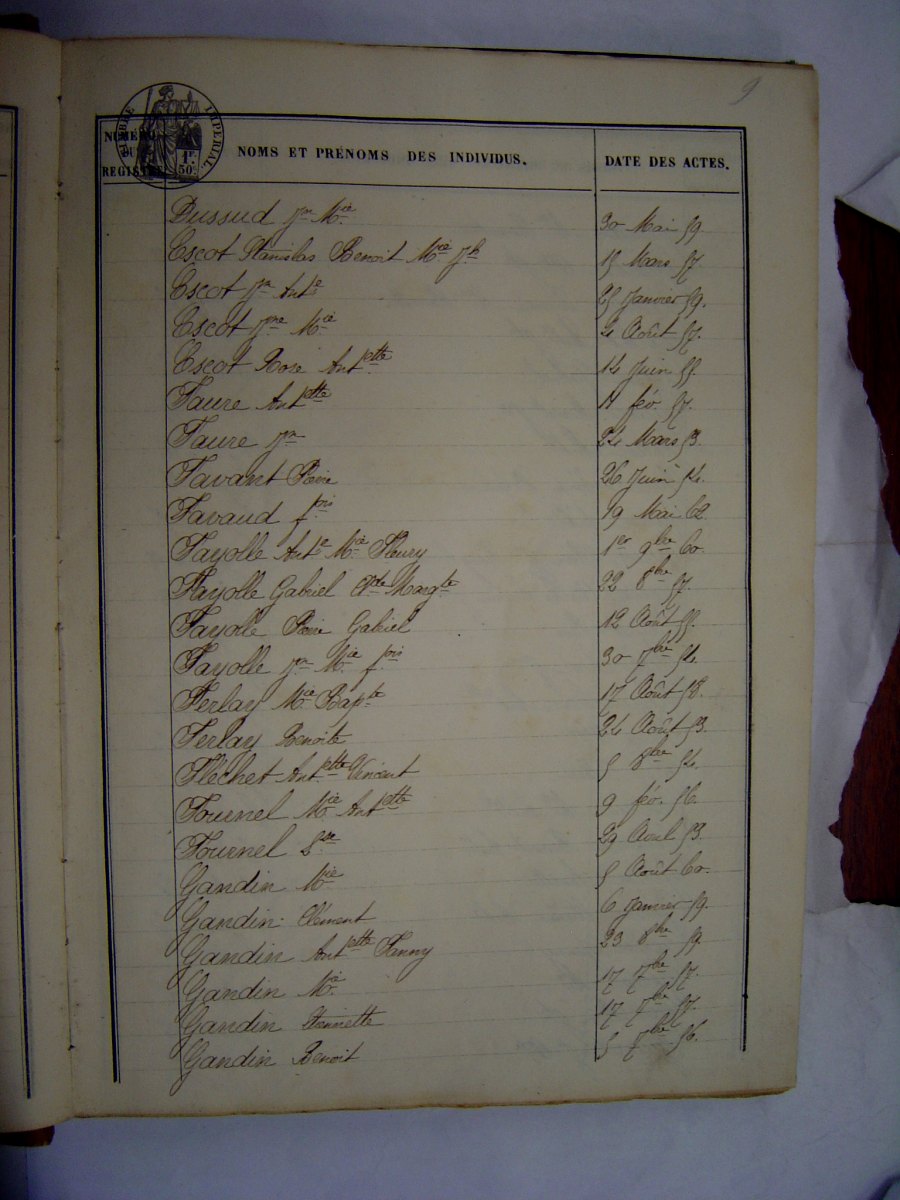 9
TIMBRE IMPÉRIAL
1F 50c
NUMÉRO DU REGISTRE
NOMS ET PRÉNOMS DES INDIVIDUS.
DATE DES ACTES.
Dussud Jn Mie 30 Mai 59
Escot Stanislas Benoit Mie Jh 15 Mars 57.
Escot Jn Ante 25 Janvier 59.
Escot Jne Mie 4 Août 57.
Escot Rose Antette 14 Juin 55.
Faure Antette 11 fév. 57.
Faure Jn 24 Mars 53.
Favant Pierre 26 Juin 54.
Favaud fois 19 Mai 62.
Fayolle Ante Mie Fleury 1er 9bre 60.
Fayolle Gabriel Margte 22 8bre 57.
Fayolle Pierre Gabriel 12 Août 55.
Fayolle Jn Mie fois 30 7bre 54.
Ferlay Mie Bapte 17 Août 58.
Ferlay Benoîte 24 Août 53.
Fléchet Antette Vincent 5 8bre 54.
Fournel Mie Antette 9 fév. 56.
Fournel 29 Avril 53.
Gandin Mie 5 Août 60.
Gandin Clément 6 Janvier 59.
Gandin Antette Fanny 23 8bre 59.
Gandin Mie 17 7bre 57.
Gandin Etiennette 17 7bre 57.
Gandin Benoit 5 7bre 56.